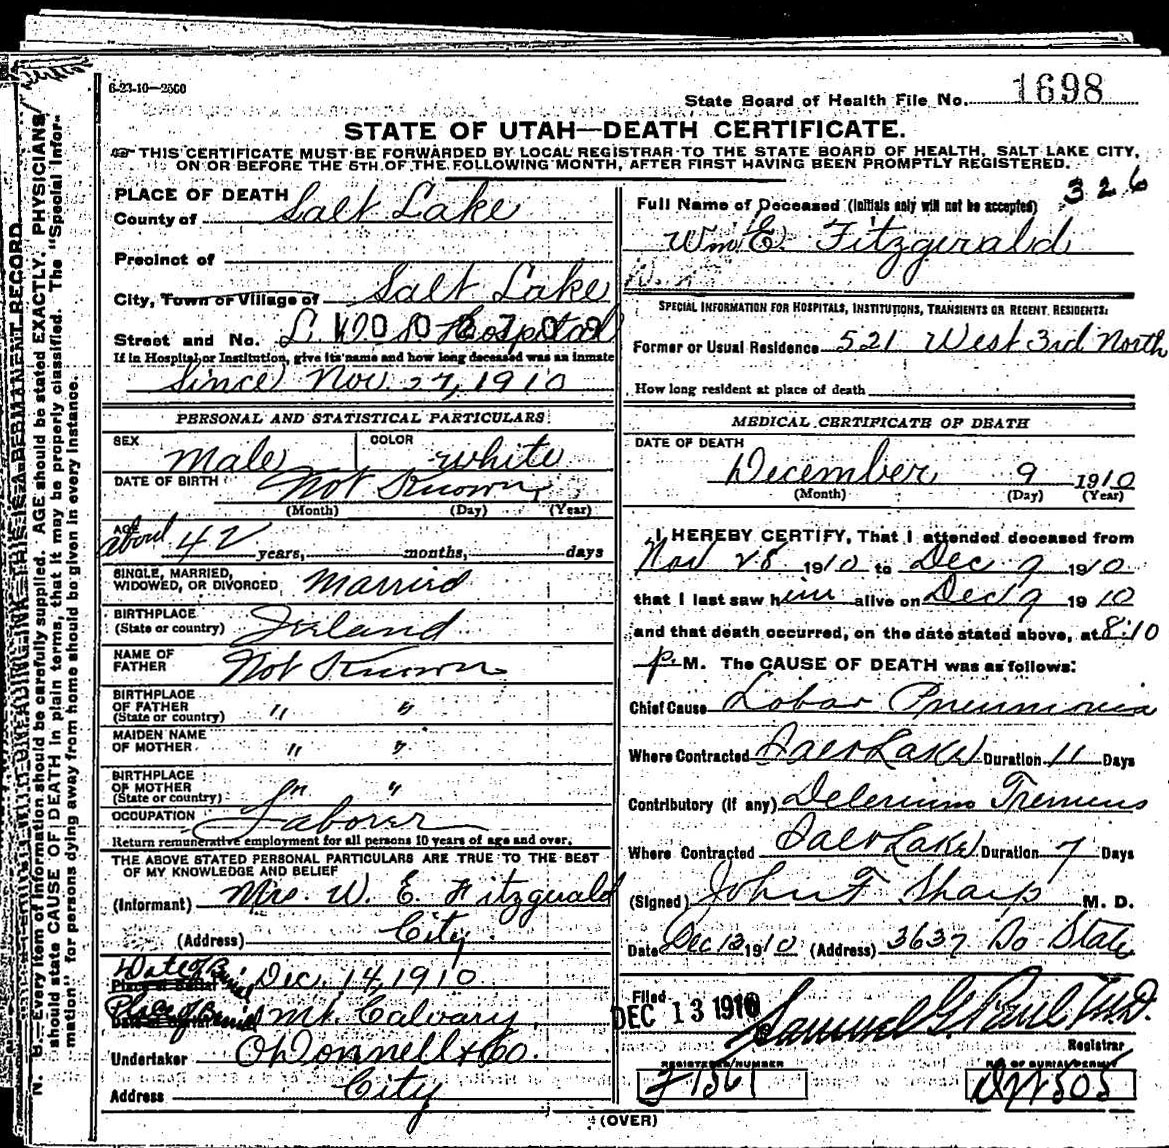 6-23-10—2500
State Board of Health File No. 1698
STATE OF UTAH—DEATH CERTIFICATE.
☞ THIS CERTIFICATE MUST BE FORWARDED BY LOCAL REGISTRAR TO THE STATE BOARD OF HEALTH, SALT LAKE CITY,
ON OR BEFORE THE 5TH OF THE FOLLOWING MONTH, AFTER FIRST HAVING BEEN PROMPTLY REGISTERED.
PLACE OF DEATH
County of Salt Lake
Precinct of
City, Town or Village of Salt Lake
Street and No. L. D. S. Hospital
If in Hospital or Institution, give its name and how long deceased was an inmate
Since Nov. 27, 1910
PERSONAL AND STATISTICAL PARTICULARS
SEX Male COLOR White
DATE OF BIRTH Not Known
(Month) (Day) (Year)
AGE about 42 years, months, days
SINGLE, MARRIED,
WIDOWED, OR DIVORCED Married
BIRTHPLACE
(State or country) Ireland
NAME OF
FATHER Not Known
BIRTHPLACE
OF FATHER
(State or country) " "
MAIDEN NAME
OF MOTHER " "
BIRTHPLACE
OF MOTHER
(State or country) " "
OCCUPATION Laborer
Return remunerative employment for all persons 10 years of age and over.
THE ABOVE STATED PERSONAL PARTICULARS ARE TRUE TO THE BEST
OF MY KNOWLEDGE AND BELIEF
(Informant) Mrs. W. E. Fitzgerald
(Address) City.
Date of Burial Dec. 14, 1910
Place of Burial Mt. Calvary.
Undertaker O'Donnell & Co.
Address City
326
Full Name of Deceased (Initials only will not be accepted)
Wm E. Fitzgerald
SPECIAL INFORMATION FOR HOSPITALS, INSTITUTIONS, TRANSIENTS OR RECENT RESIDENTS:
Former or Usual Residence 521 West 3rd North
How long resident at place of death
MEDICAL CERTIFICATE OF DEATH
DATE OF DEATH
December 9 1910
(Month) (Day) (Year)
I HEREBY CERTIFY, That I attended deceased from
Nov 28 1910 to Dec 9 1910
that I last saw him alive on Dec 9 1910
and that death occurred, on the date stated above, at 8:10
p. M. The CAUSE OF DEATH was as follows:
Chief Cause Lobar Pneumonia
Where Contracted Salt Lake Duration 11 Days
Contributory (if any) Delerium Tremens
Where Contracted Salt Lake Duration 7 Days
(Signed) John F Sharp M. D.
Date Dec 12 1910 (Address) 3637 So State
Filed DEC 13 1910 Samuel G. Paul M.D.
Registrar
REGISTERED NUMBER NO. OF BURIAL PERMIT
(OVER)
N. B.—Every item of information should be carefully supplied. AGE should be stated EXACTLY. PHYSICIANS
should state CAUSE OF DEATH in plain terms, that it may be properly classified. The "Special Infor-
mation" for persons dying away from home should be given in every instance.